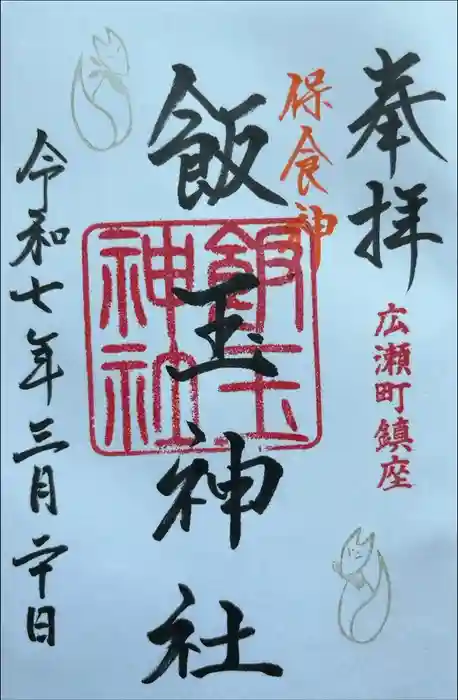 奉拝
広瀬町鎮座
保食神
飯玉神社
飯玉
神社
令和七年三月二十日